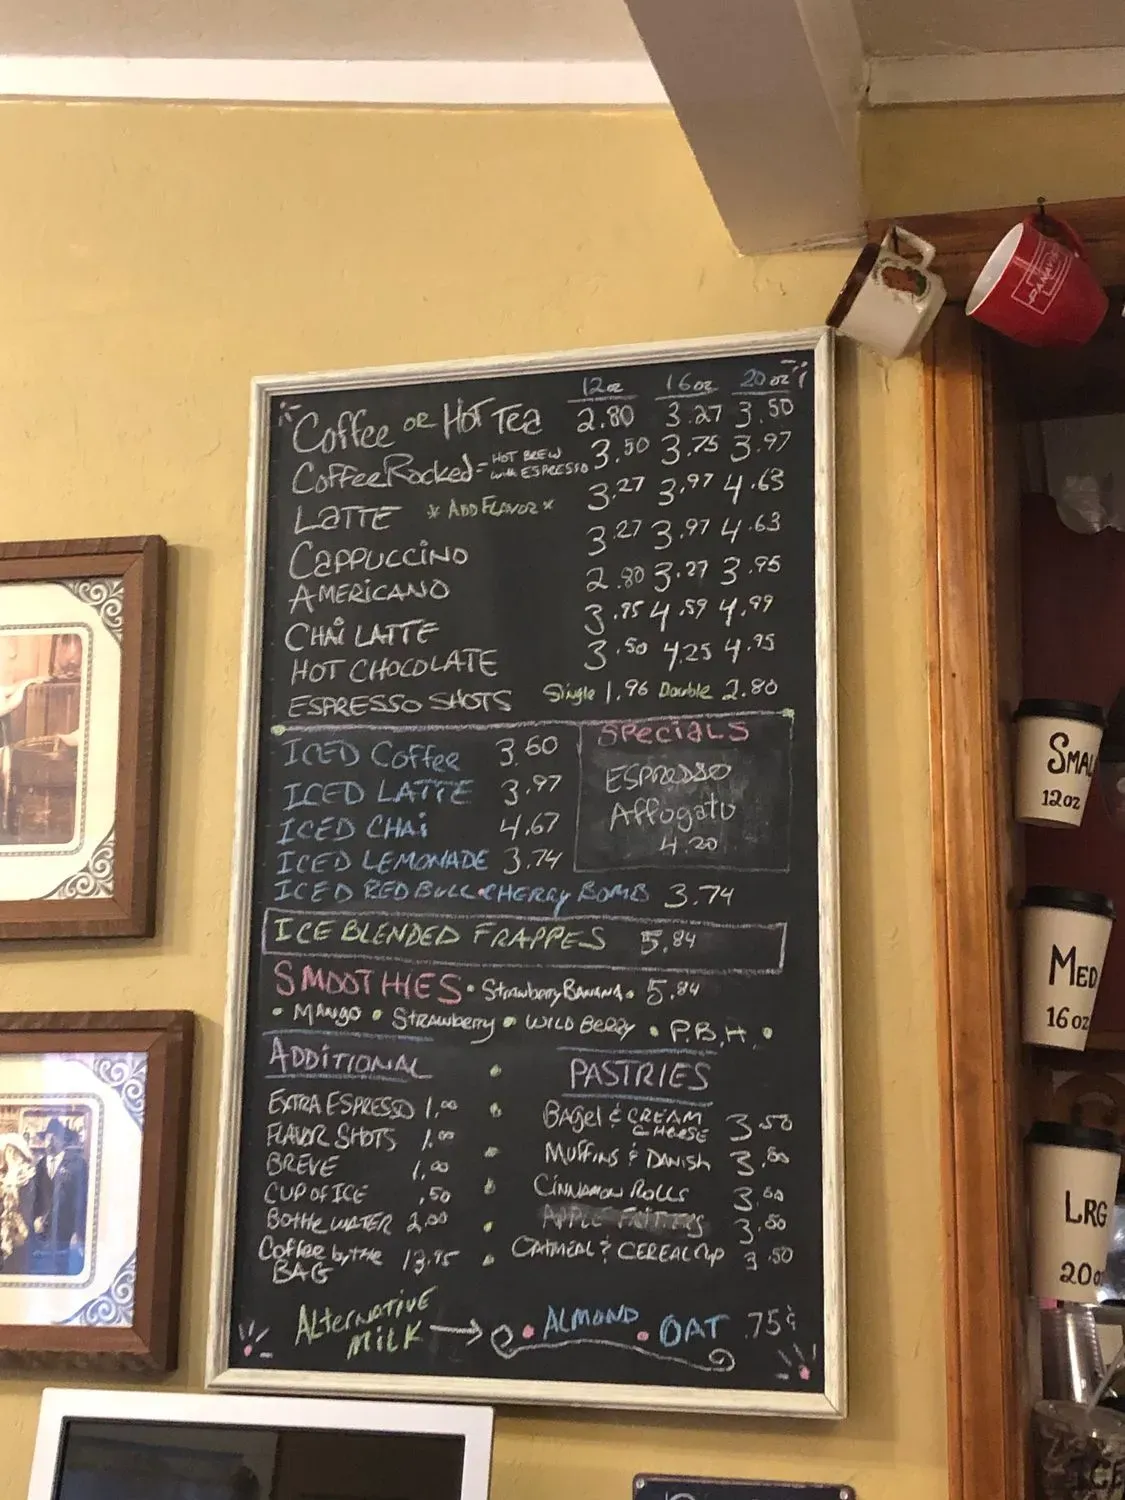 12oz 16oz 20oz
Coffee OR HOT TEA 2.80 3.27 3.50
Coffee Rocked = HOT BREW with ESPRESSO 3.50 3.75 3.97
LATTE * ADD FLAVOR * 3.27 3.97 4.63
CAPPUCCINO 3.27 3.97 4.63
AMERICANO 2.80 3.27 3.95
CHAI LATTE 3.95 4.59 4.99
HOT CHOCOLATE 3.50 4.25 4.95
ESPRESSO SHOTS Single 1.96 Double 2.80
ICED Coffee 3.60
ICED LATTE 3.97
ICED CHAI 4.67
ICED LEMONADE 3.74
ICED RED BULL • CHERRY BOMB 3.74
SPECIALS
ESPRESSO
Affogato
4.20
ICE BLENDED FRAPPES 5.84
SMOOTHIES • Strawberry BANANA • 5.84
• MANGO • STRAWBERRY • WILD BERRY • P.B.H. •
ADDITIONAL
EXTRA ESPRESSO 1.00
FLAVOR SHOTS 1.00
BREVE 1.00
CUP OF ICE .50
Bottle WATER 2.00
Coffee by the BAG 13.95
PASTRIES
BAgel & CREAM CHEESE 3.50
MUFFINS & DANISH 3.50
CINNAMON ROLLS 3.50
APPLE FRITTERS 3.50
OATMEAL & CEREAL CUP 3.50
ALTERNATIVE MILK → • ALMOND • OAT .75¢
PANAVISION
SMALL
12oz
MED
16oz
LRG
20oz
ICE